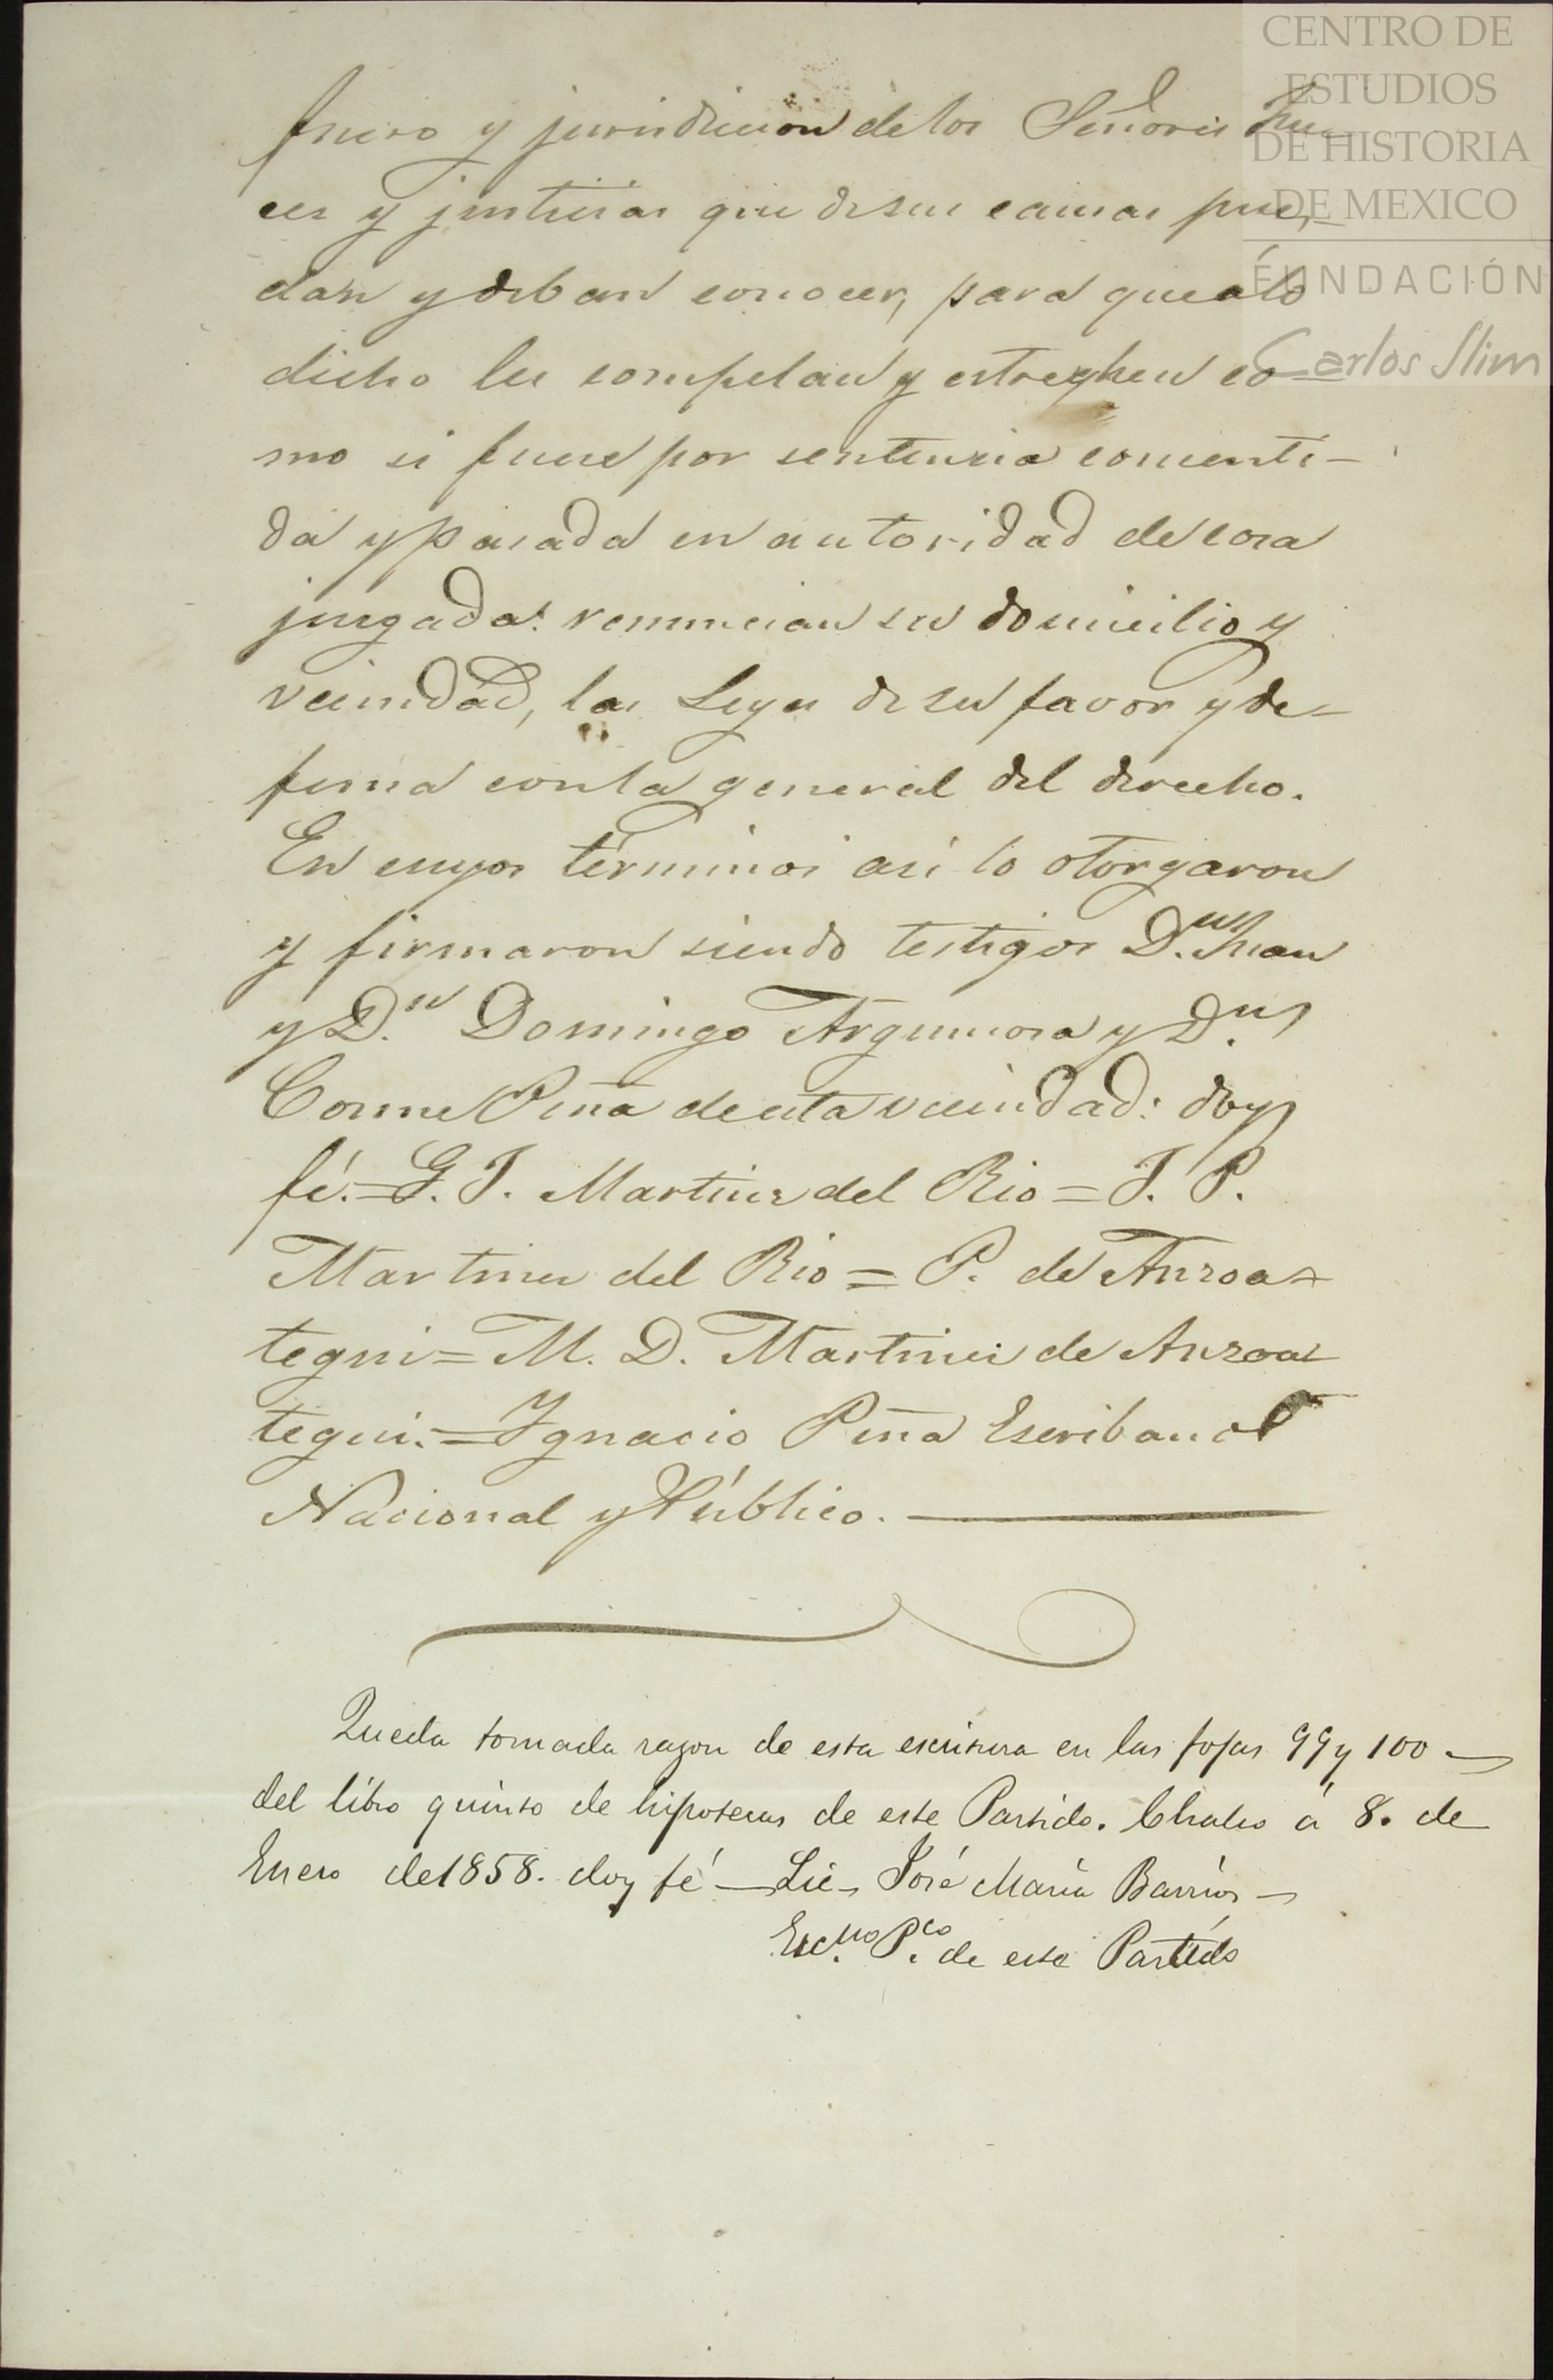 CENTRO DE
ESTUDIOS
DE HISTORIA
DE MEXICO
FUNDACIÓN
Carlos Slim
fuero y jurisdiccion de los Señores Jue-
ces y justicias que de sus causas pue-
dan y deban conocer, para que a lo
dicho les compelan y estreghen co-
mo si fuese por sentencia consenti-
da y pasada en autoridad de cosa
juzgada: renuncian su domicilio y
vecindad, las Leyes de su favor y de-
fensa con la general del derecho.
En cuyos términos asi lo otorgaron
y firmaron siendo testigos D.n Juan
y D.n Domingo Argumosa y D.n
Cosme Piña de esta vecindad: doy
fé.=G. J. Martinez del Rio=J. P.
Martinez del Rio=P. de Anzoa-
tegui=M. D. Martinez de Anzoa-
tegui.=Ygnacio Piña Escribano
Nacional y Público.
Queda tomada razon de esta escritura en las fojas 99 y 100
del libro quinto de hipotecas de este Partido. Chalco á 8. de
Enero de 1858. doy fé—Lic. José María Barrios
Esc.no P.co de este Partido